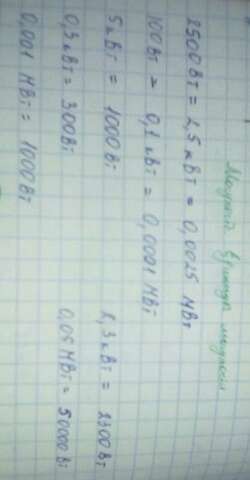 2500 Вт = 2,5 кВт = 0,0025 МВт
100 Вт = 0,1 кВт = 0,0001 МВт
5 кВт = 1000 Вт 2,3 кВт = 2300 Вт
0,3 кВт = 300 Вт 0,05 МВт = 50000 Вт
0,001 МВт = 1000 Вт